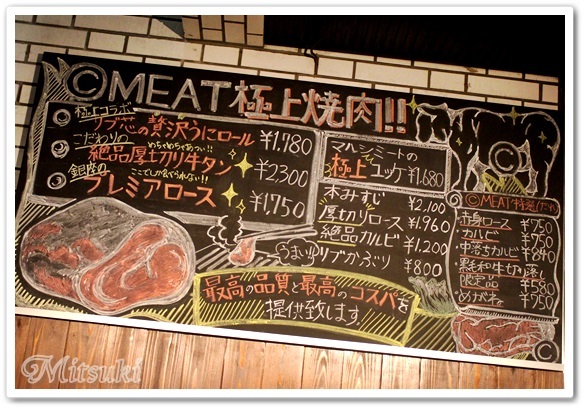 ©MEAT極上焼肉!!
極上コラボ
リブ芯の贅沢うにロール ¥1,780
こだわりの
めちゃめちゃあつい!!
絶品厚切り牛タン ¥2300
銀座の
ここでしか食べられない!!
プレミアロース ¥1,750
マルシンミートの
極上ユッケ ¥1,680
本みすじ ¥2,100
厚切りロース ¥1,960
絶品カルビ ¥1,200
うまいゆリブかぶり ¥800
最高の品質と最高のコスパを
提供致します
©
©MEAT特選!だれ
赤身ロース ¥750
カルビ ¥750
中落ちカルビ ¥840
黒毛和牛切り落し
限定品 ¥580
めがね ¥750
©
Mitsuki